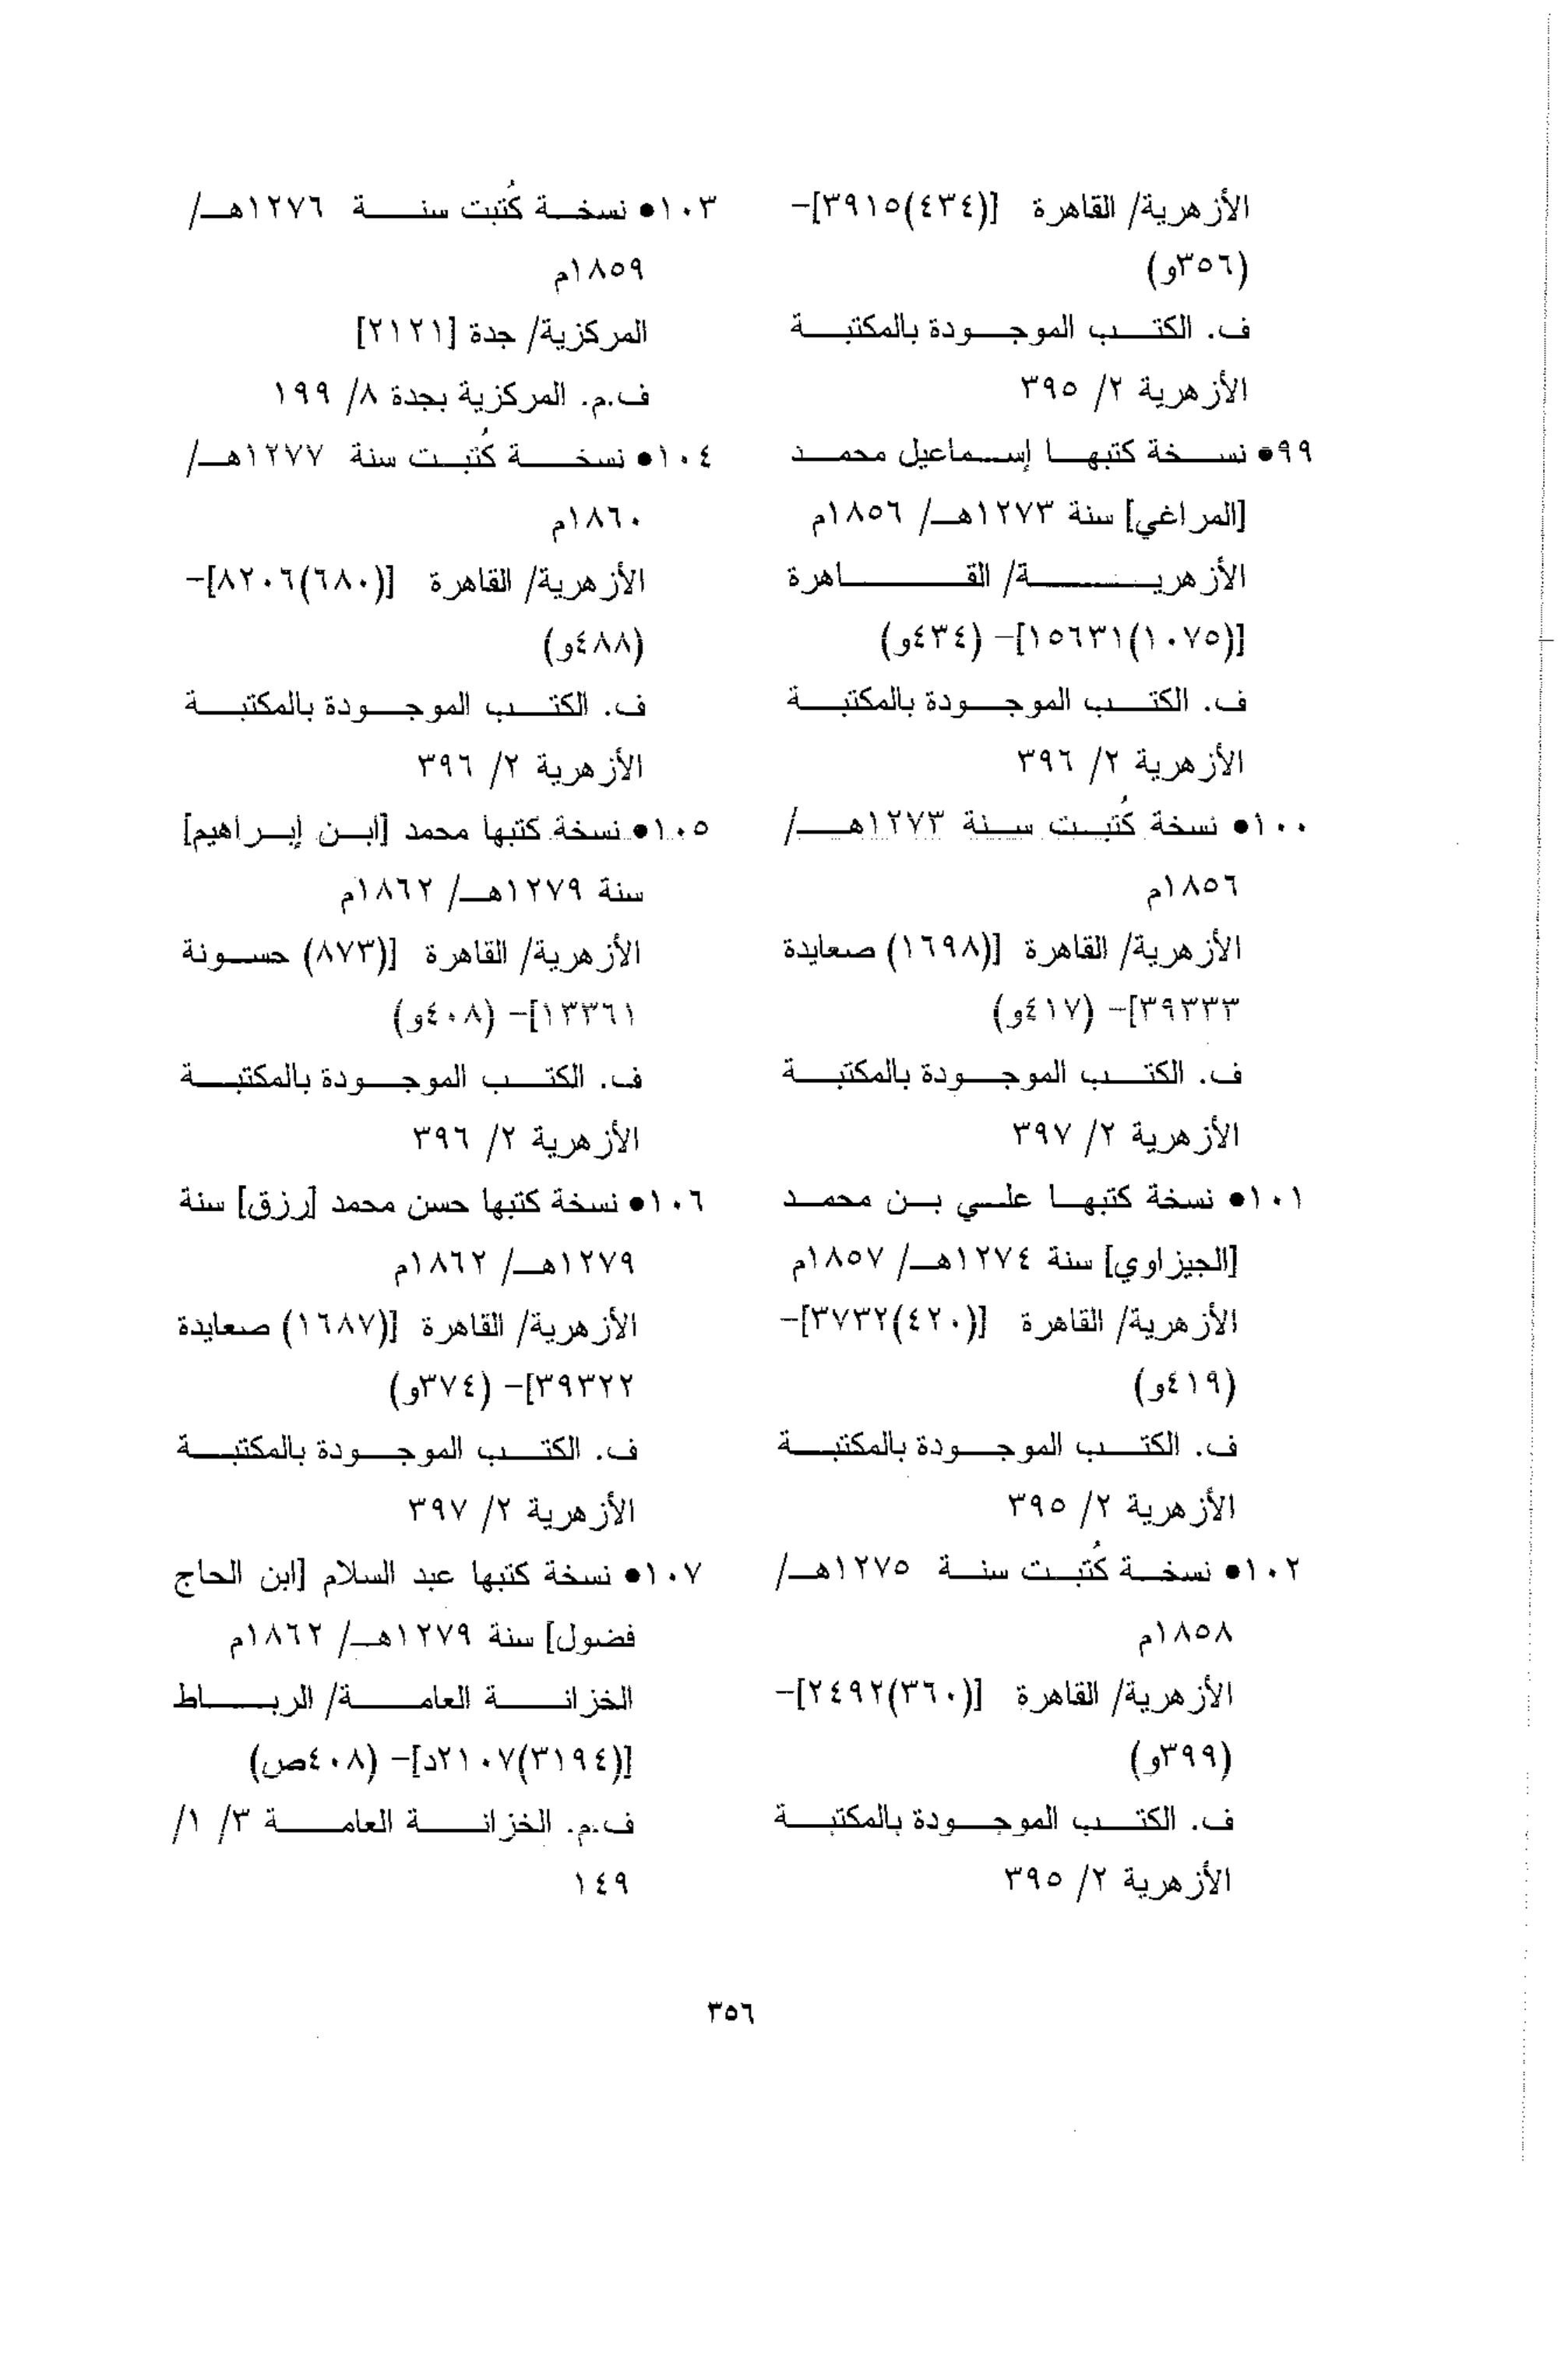 الأزهرية/ القاهرة [(٤٣٤)٣٩١٥]-
(٣٥٦و)
ف. الكتب الموجودة بالمكتبة
الأزهرية ٢/ ٣٩٥
٩٩● نسخة كتبها إسماعيل محمد
[المراغي] سنة ١٢٧٣هـ/ ١٨٥٦م
الأزهرية/ القاهرة
[(١٠٧٥)١٥٦٣١]- (٤٣٤و)
ف. الكتب الموجودة بالمكتبة
الأزهرية ٢/ ٣٩٦
١٠٠● نسخة كُتبت سنة ١٢٧٣هـ/
١٨٥٦م
الأزهرية/ القاهرة [(١٦٩٨) صعايدة
٣٩٣٣٣]- (٤١٧و)
ف. الكتب الموجودة بالمكتبة
الأزهرية ٢/ ٣٩٧
١٠١● نسخة كتبها علي بن محمد
[الجيزاوي] سنة ١٢٧٤هـ/ ١٨٥٧م
الأزهرية/ القاهرة [(٤٢٠)٣٧٣٢]-
(٤١٩و)
ف. الكتب الموجودة بالمكتبة
الأزهرية ٢/ ٣٩٥
١٠٢● نسخة كُتبت سنة ١٢٧٥هـ/
١٨٥٨م
الأزهرية/ القاهرة [(٣٦٠)٢٤٩٢]-
(٣٩٩و)
ف. الكتب الموجودة بالمكتبة
الأزهرية ٢/ ٣٩٥
١٠٣● نسخة كُتبت سنة ١٢٧٦هـ/
١٨٥٩م
المركزية/ جدة [٢١٢١]
ف.م. المركزية بجدة ٨/ ١٩٩
١٠٤● نسخة كُتبت سنة ١٢٧٧هـ/
١٨٦٠م
الأزهرية/ القاهرة [(٦٨٠)٨٢٠٦]-
(٤٨٨و)
ف. الكتب الموجودة بالمكتبة
الأزهرية ٢/ ٣٩٦
١٠٥● نسخة كتبها محمد [ابن إبراهيم]
سنة ١٢٧٩هـ/ ١٨٦٢م
الأزهرية/ القاهرة [(٨٧٣) حسونة
١٣٣٦١]- (٤٠٨و)
ف. الكتب الموجودة بالمكتبة
الأزهرية ٢/ ٣٩٦
١٠٦● نسخة كتبها حسن محمد [رزق] سنة
١٢٧٩هـ/ ١٨٦٢م
الأزهرية/ القاهرة [(١٦٨٧) صعايدة
٣٩٣٢٢]- (٣٧٤و)
ف. الكتب الموجودة بالمكتبة
الأزهرية ٢/ ٣٩٧
١٠٧● نسخة كتبها عبد السلام [ابن الحاج
فضول] سنة ١٢٧٩هـ/ ١٨٦٢م
الخزانة العامة/ الرباط
[(٣١٩٤)٢١٠٧د]- (٤٠٨ص)
ف.م. الخزانة العامة ٣/ ١/
١٤٩
٣٥٦